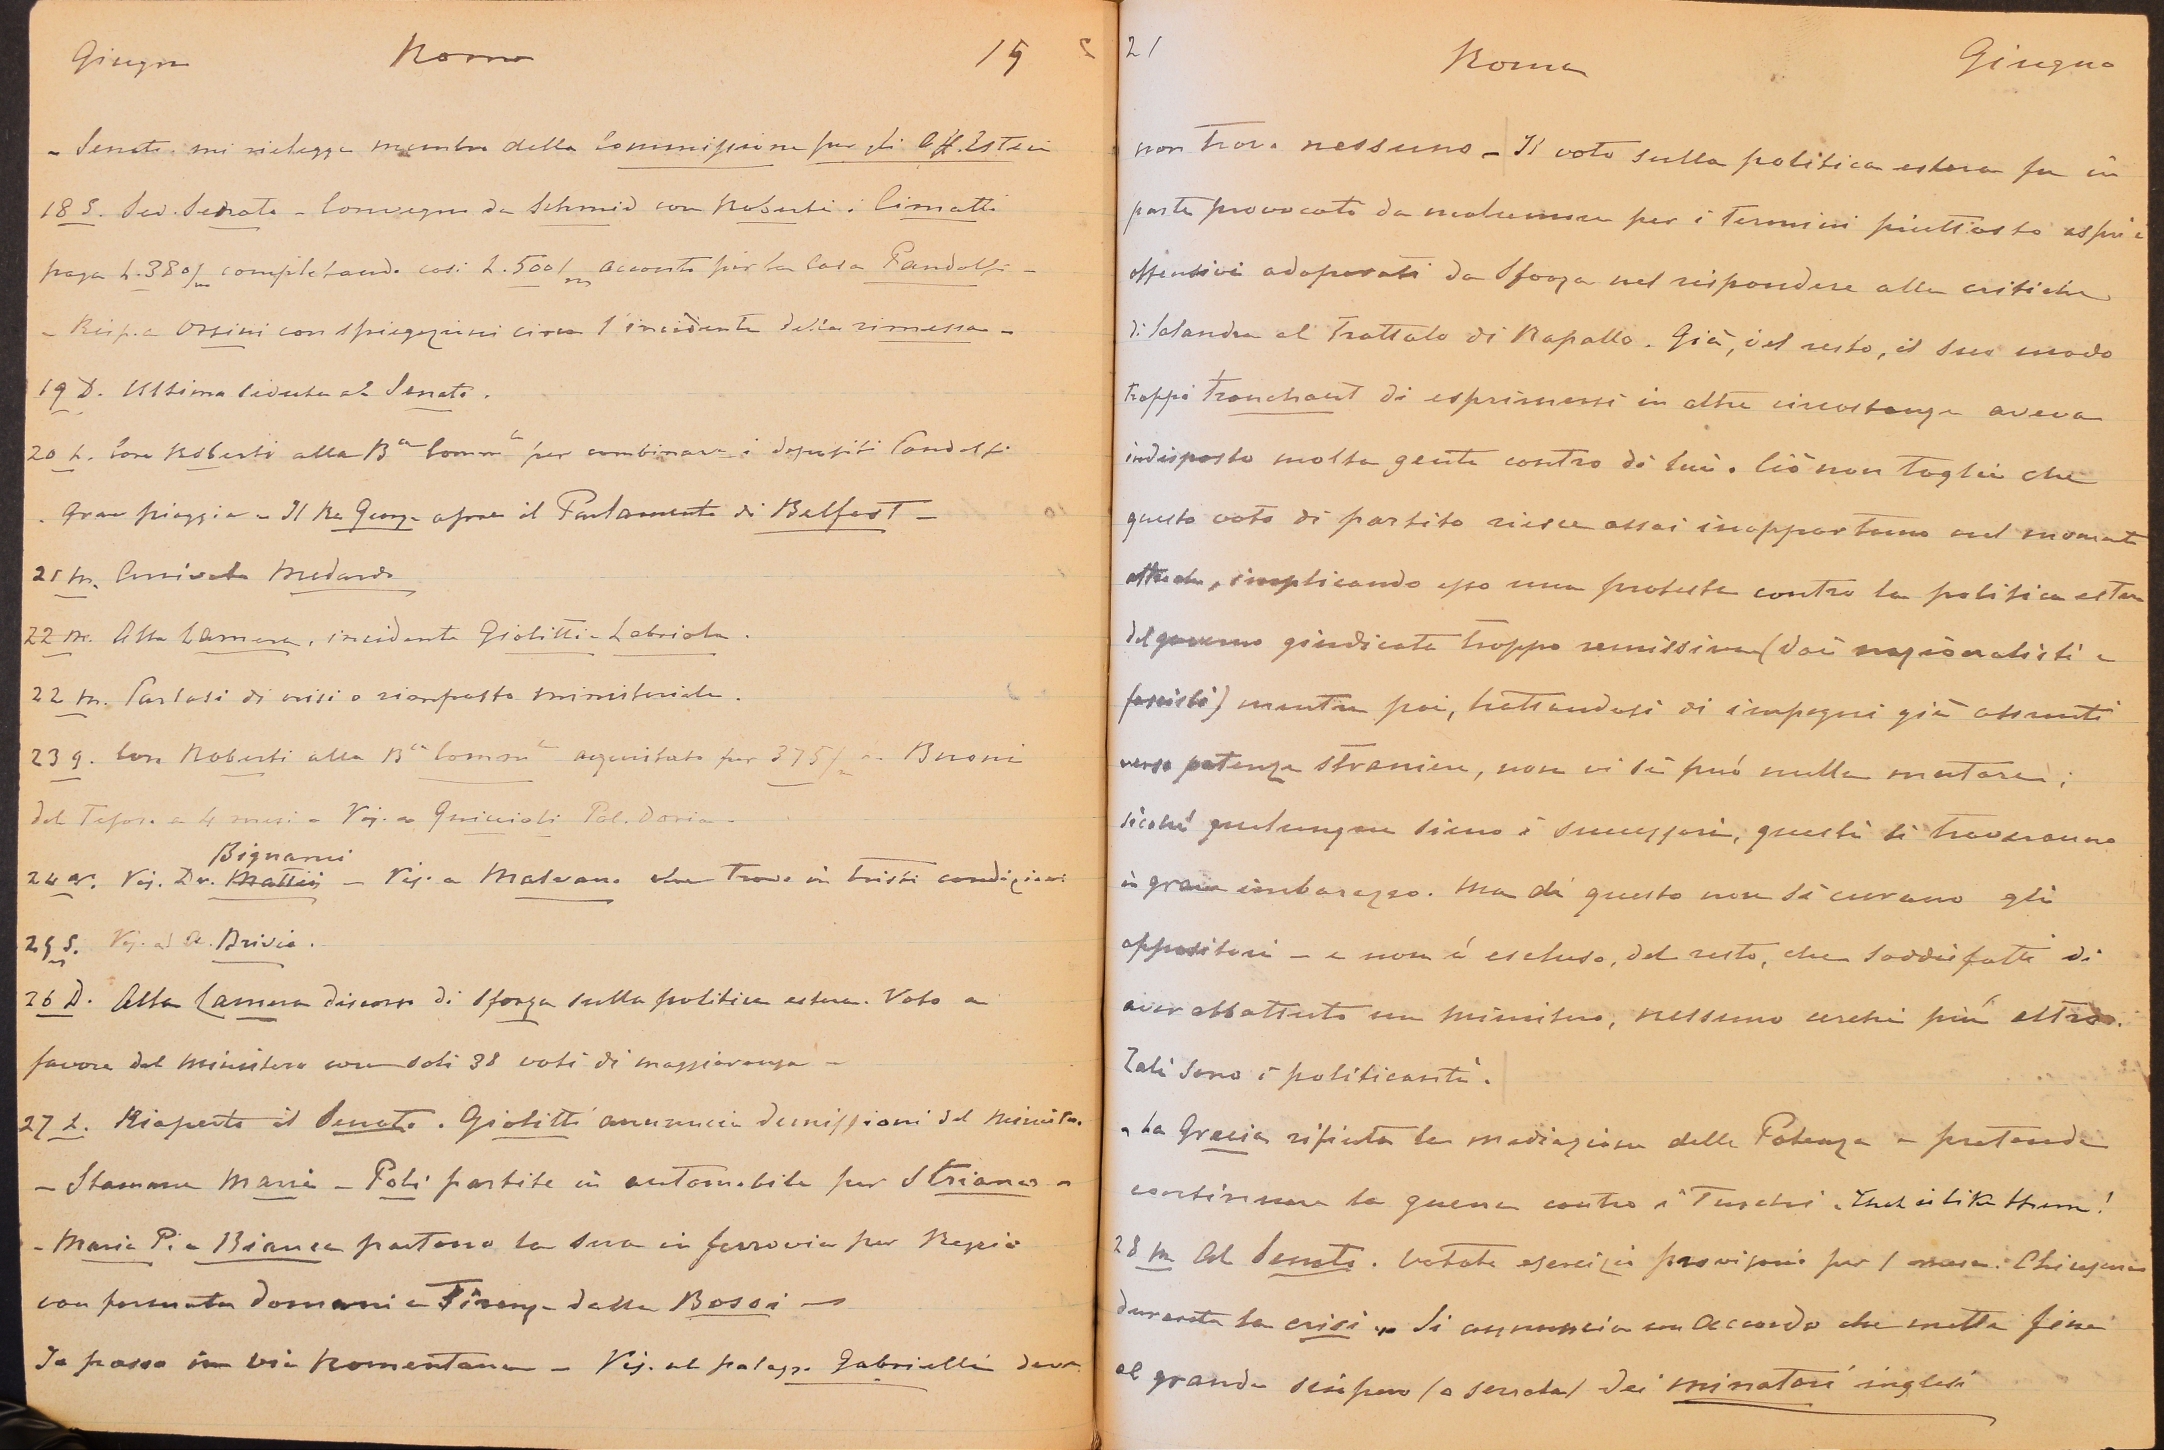 Giugno Roma 19
- Senato mi rielegge membro della Commissione per gli Aff. Esteri
18 S. Sed. Senato - Convegno da Schmid con Roberti i Cimatti
paga L. 380/m completando così L. 500/m acconto per la Casa Pandolfi -
- Risp. a Orsini con spiegazioni circa l'incidente della rimessa -
19 D. Ultima seduta al Senato.
20 L. Con Roberti alla Bca Comm le per combinare i depositi Pandolfi
. Gran pioggia - Il Re George apre il Parlamento di Belfast -
21 M. Arrivato Medardo
22 M. Alla Camera, incidente Giolitti - Labriola.
22 M. Parlasi di crisi o rimpasto ministeriale.
23 G. Con Roberti alla Bca Comm le acquistato per 375/m Buoni
del Tesoro a 4 mesi - Vis. a Guiccioli Pal. Doria -
Bignami
24 V. Vis. Dr. Mattei - Vis. a Malvano che trovo in tristi condizioni
25 S. Vis. ad A. Brivio.
26 D. Alla Camera discorso di Sforza sulla politica estera. Voto a
favore del ministero con soli 38 voti di maggioranza -
27 L. Riaperto il Senato. Giolitti annuncia dimissioni del Ministro.
- Stamane Maria - Poli partite in automobile per Striano -
- Maria P. e Bianca partono la sera in ferrovia per Reggio
con fermata domani a Firenze dalla Bossi -
Io passo in via Nomentana - Vis. al palazzo Gabrielli dove
21 Roma Giugno
non trovo nessuno - Il voto sulla politica estera fu in
parte provocato da malumore per i termini piuttosto aspri e
offensivi adoperati da Sforza nel rispondere alle critiche
di Salandra al Trattato di Rapallo. Già, del resto, il suo modo
troppo tranchant di esprimersi in altre circostanze aveva
indisposto molta gente contro di lui. Ciò non toglie che
questo voto di partito riesce assai inopportuno nel momento
attuale, implicando esso una protesta contro la politica estera
del governo giudicata troppo remissiva (dai nazionalisti e
fascisti) mentre poi, trattandosi di impegni già assunti
verso potenze straniere, non vi si può nulla mutare;
sicché qualunque sieno i successori, questi si troveranno
in gran imbarazzo. Ma di questo non si curano gli
oppositori - e non è escluso, del resto, che soddisfatti di
aver abbattuto un ministero, nessuno cerchi più altro.
Tali sono i politicanti.
- La Grecia rifiuta la mediazione delle Potenze - pretende
continuare la guerra contro i Turchi.
28 M Al Senato. Votato esercizio provvisorio per 1 mese. Chiusura
durante la crisi - Si annuncia un accordo che mette fine
al grande sciopero (o serrata) dei minatori inglesi